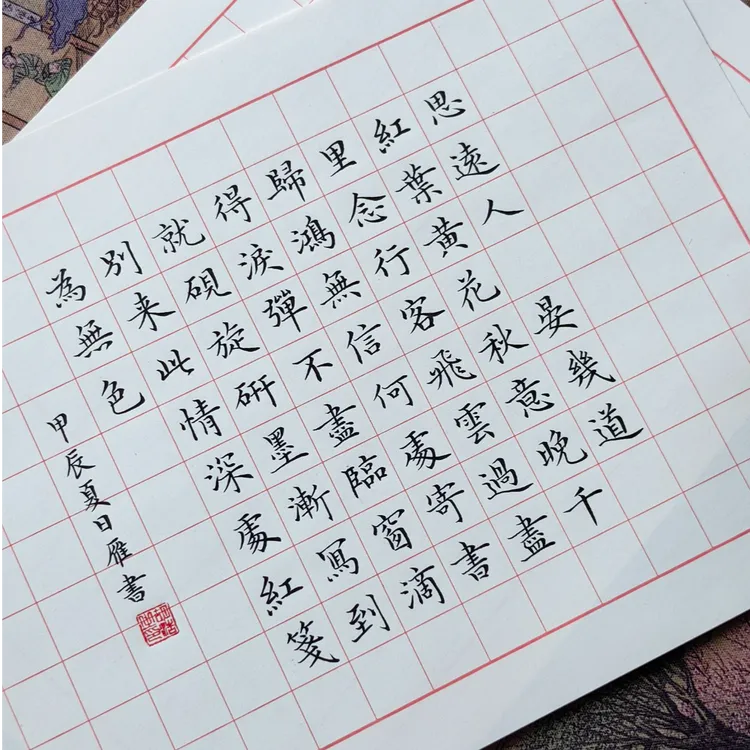 思遠人 晏幾道
紅葉黃花秋意晚千
里念行客飛雲過盡
歸鴻無信何處寄書
得淚彈不盡臨窗滴
就硯旋研墨漸寫到
別来此情深處紅箋
為無色
甲辰夏日雁書